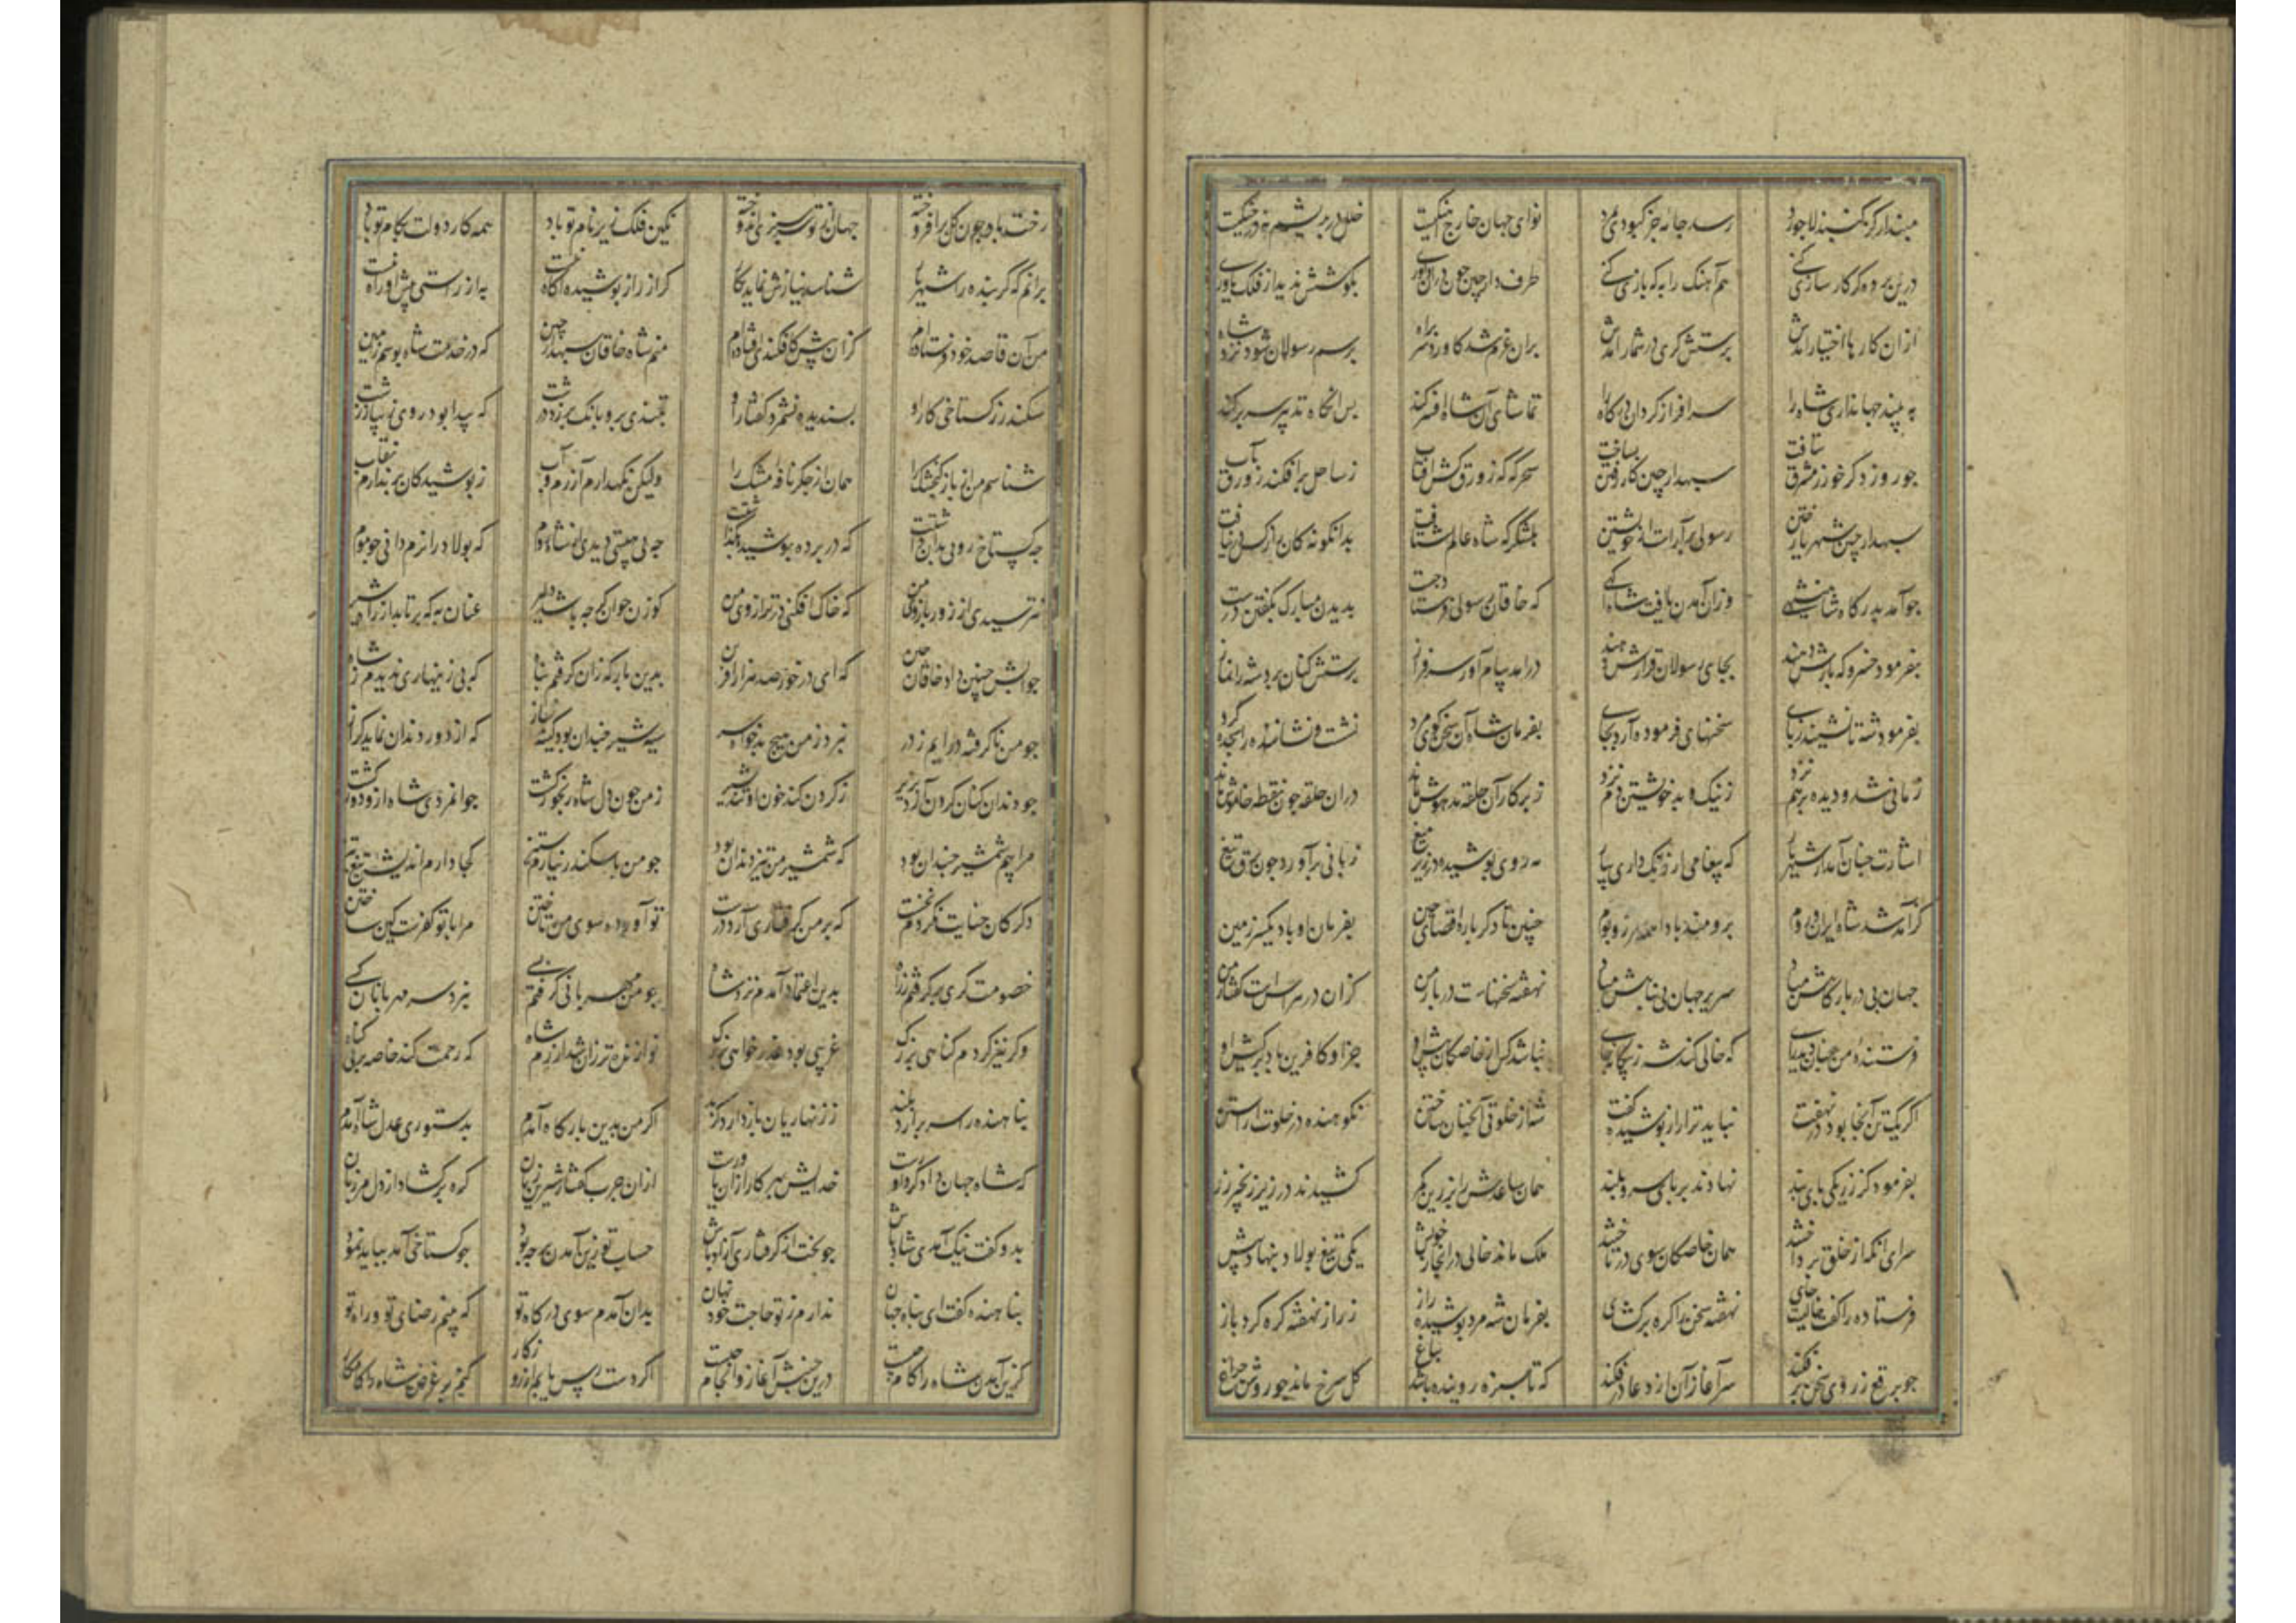 مپندار کز گنبد لاجورد رسد جامه جز کبودی بمرد نوای جهان خارج آهنگیست خلل در بریشم نه در چنگیست
درین پرده گر کار سازی کنی هم آهنگ را به که بازی کنی طرفدار چین چون در آن داوری بکوشش ندید از فلک یاوری
از آن کارها اختیار آمدش پرستش گری در شمار آمدش بران عزم شد کاورد سر براه برسم رسولان شود نزد شاه
به بیند جهانداری شاه را سرافراز کردان درگاه را تماشای آن شاه افسر کند پس انگاه تدبیر سر بر کند
چو روز دگر خور ز مشرق بتافت سپهدار چین کار رفتن بساخت سحرگه که زورق کش آفتاب ز ساحل برافکند زورق بآب
سپهدار چین شهریار ختن رسولی برآراست از خویشتن بلشکرگه شاه عالم شتافت بدانگونه کان راز کس در نیافت
چو آمد بدرگاه شاهنشهی وز آن آمدن یافت شاه آگهی که خاقان رسولی فرستاد چست بدیدن مبارک بگفتن درست
بفرمود خسرو که بارش دهند بجای رسولان قرارش دهند درامد پیام آور سرفراز پرستش کنان برد شه را نماز
بفرمود شه تا نشیند ز پای سخنهای فرموده آرد بجای بفرمان شاه آن سخن گوی مرد نشست و نشاننده را سجده کرد
زمانی شد و دیده بر هم نزد ز نیک و بد خویشتن دم نزد ز پرکار آن حلقه مدهوش ماند در آن حلقه چون نقطه خاموش ماند
اشارت چنان آمد از شهریار که پیغامی ار نیک داری بیار مه روی پوشیده در زیر میغ زبانی برآورد چون برق تیغ
کز آمد شد شاه ایران و روم برومند باد این همه مرز و بوم چنین تا دگر باره اقصای چین بفرمان او باد یکسر زمین
جهان بی در بارگاهش مباد سریر جهان بی پناهش مباد نهفته سخنهاست در بار من کزان در هراس است گفتار من
فرستنده من چنان دید رای که خالی کند شه ز بیگانه جای نباشد کس از خاصگان پیش او جز او کافرین باد بر کیش او
اگر یک تن آنجا بود در نهفت نباید ترا راز پوشیده گفت شه از خلوتی آنچنان ساختن نکوهنده در خلوت انداختن
بفرمود کز زر یکی پای بند نهادند بر پای سرو بلند همان ساعدش را بزرین کمر کشیدند در زیر زنجیر زر
سرای انگه از خلق پرداختند همان خاصگان سوی در تاختند ملک ماند خالی در انجای خویش یکی تیغ پولاد بنهاد پیش
فرستاده را گفت خالیست جای نهفته سخن را گره برگشای بفرمان شه مرد پوشیده راز ز راز نهفته گره کرد باز
چو برقع ز روی سخن برفکند سرآغاز آن از دعا درفکند که تا سبزه روینده باشد بباغ گل سرخ ماند چو روشن چراغ
رخت باد چون گل برافروخته جهان از تو سرسبزی اندوخته نگین فلک زیر نام تو باد همه کار دولت بکام تو باد
برانم که گر بنده را شهریار شناسد نیازش نماید بکار گر از راز پوشیده آگاه نیست به از راستی پیش او راه نیست
من آن قاصد خود فرستاده ام کزان پیش کافکندی افتاده ام منم شاه خاقان سپهدار چین که در خدمت شاه بوسم زمین
سکندر ز گستاخی کار او پسندیده نشمرد گفتار او بتندی برو بانک برزد درشت که پیدا بود روی دیبا ز پشت
شناسم من از باز گنجشک را همان از جگر نافه مشک را ولیکن نگهدارم آزرم و آب ز پوشیدگان برندارم نقاب
چه گستاخ رویی بدان داشتت که در پرده پوشیده نگذاشتت چه بی هیبتی دیدی از شاه روم که پولاد را نرم دانی چو موم
نترسیدی از زور بازوی من که خاک افکنی در ترازوی من گوزن جوان گرچه باشد دلیر عنان به که برتابد از راه شیر
جوابش چنین داد خاقان چین که ای در خور صد هزار آفرین بدین بارگه زان گرفتم پناه که بی زینهاری ندیدم ز شاه
چو من ناگرفته درایم ز در نبرد ز من هیچ بدخواه سر سیه شیر چندان بود کینه ساز که از دور دندان نماید گراز
چو دندان کنان گردن آرد بزیر ز گردن کند خون او تند شیر ز من چون دل شاه رنجور گشت جوانمردی شاه ازو دور گشت
مرا چشم شمشیر چندان بود که شمشیر من تیز دندان بود چو من با سکندر نیارم ستیز کجا دارم اندیشه تیغ تیز
دگر کان خیانت نکردم نخست که بر من گرفتاری آرد درست تو آورده سوی من تاختن مرا با تو کفرست کین ساختن
خصومت گری برگرفتم ز راه بدین اعتماد آمدم نزد شاه چو من مهربانی گرفتم بسی نبرد سر مهربانان کسی
وگر نیز کردم گناهی بزرگ غریبی بود عذرخواهی بزرگ نوازنده تر زان شد آزرم شاه که رحمت کند خاصه بر بی گناه
پناهنده را سر برآرد بلند ز زنهاریان باز دارد گزند اگر من بدین بارگاه آمدم بدستوری عدل شاه آمدم
که شاه جهان دادگر داورست خدایش بهر کار ازان یاورست ازان چرب گفتار شیرین زبان گره برگشاد از دل مرزبان
بدو گفت نیک آمدی شاد باش چو بخت از گرفتاری آزاد باش حساب تو زین آمدن بر چه بود چو گستاخی آمد بباید نمود
پناهنده گفت ای پناه جهان ندارم ز تو حاجت خود نهان بدان آمدم سوی درگاه تو که بینم رضای تو و راه تو
کزین آمدن شاه را کام چیست درین جنبش آغاز و انجام چیست گرم دسترس باشد از روزگار کنم بر غرض شاه را کامگار